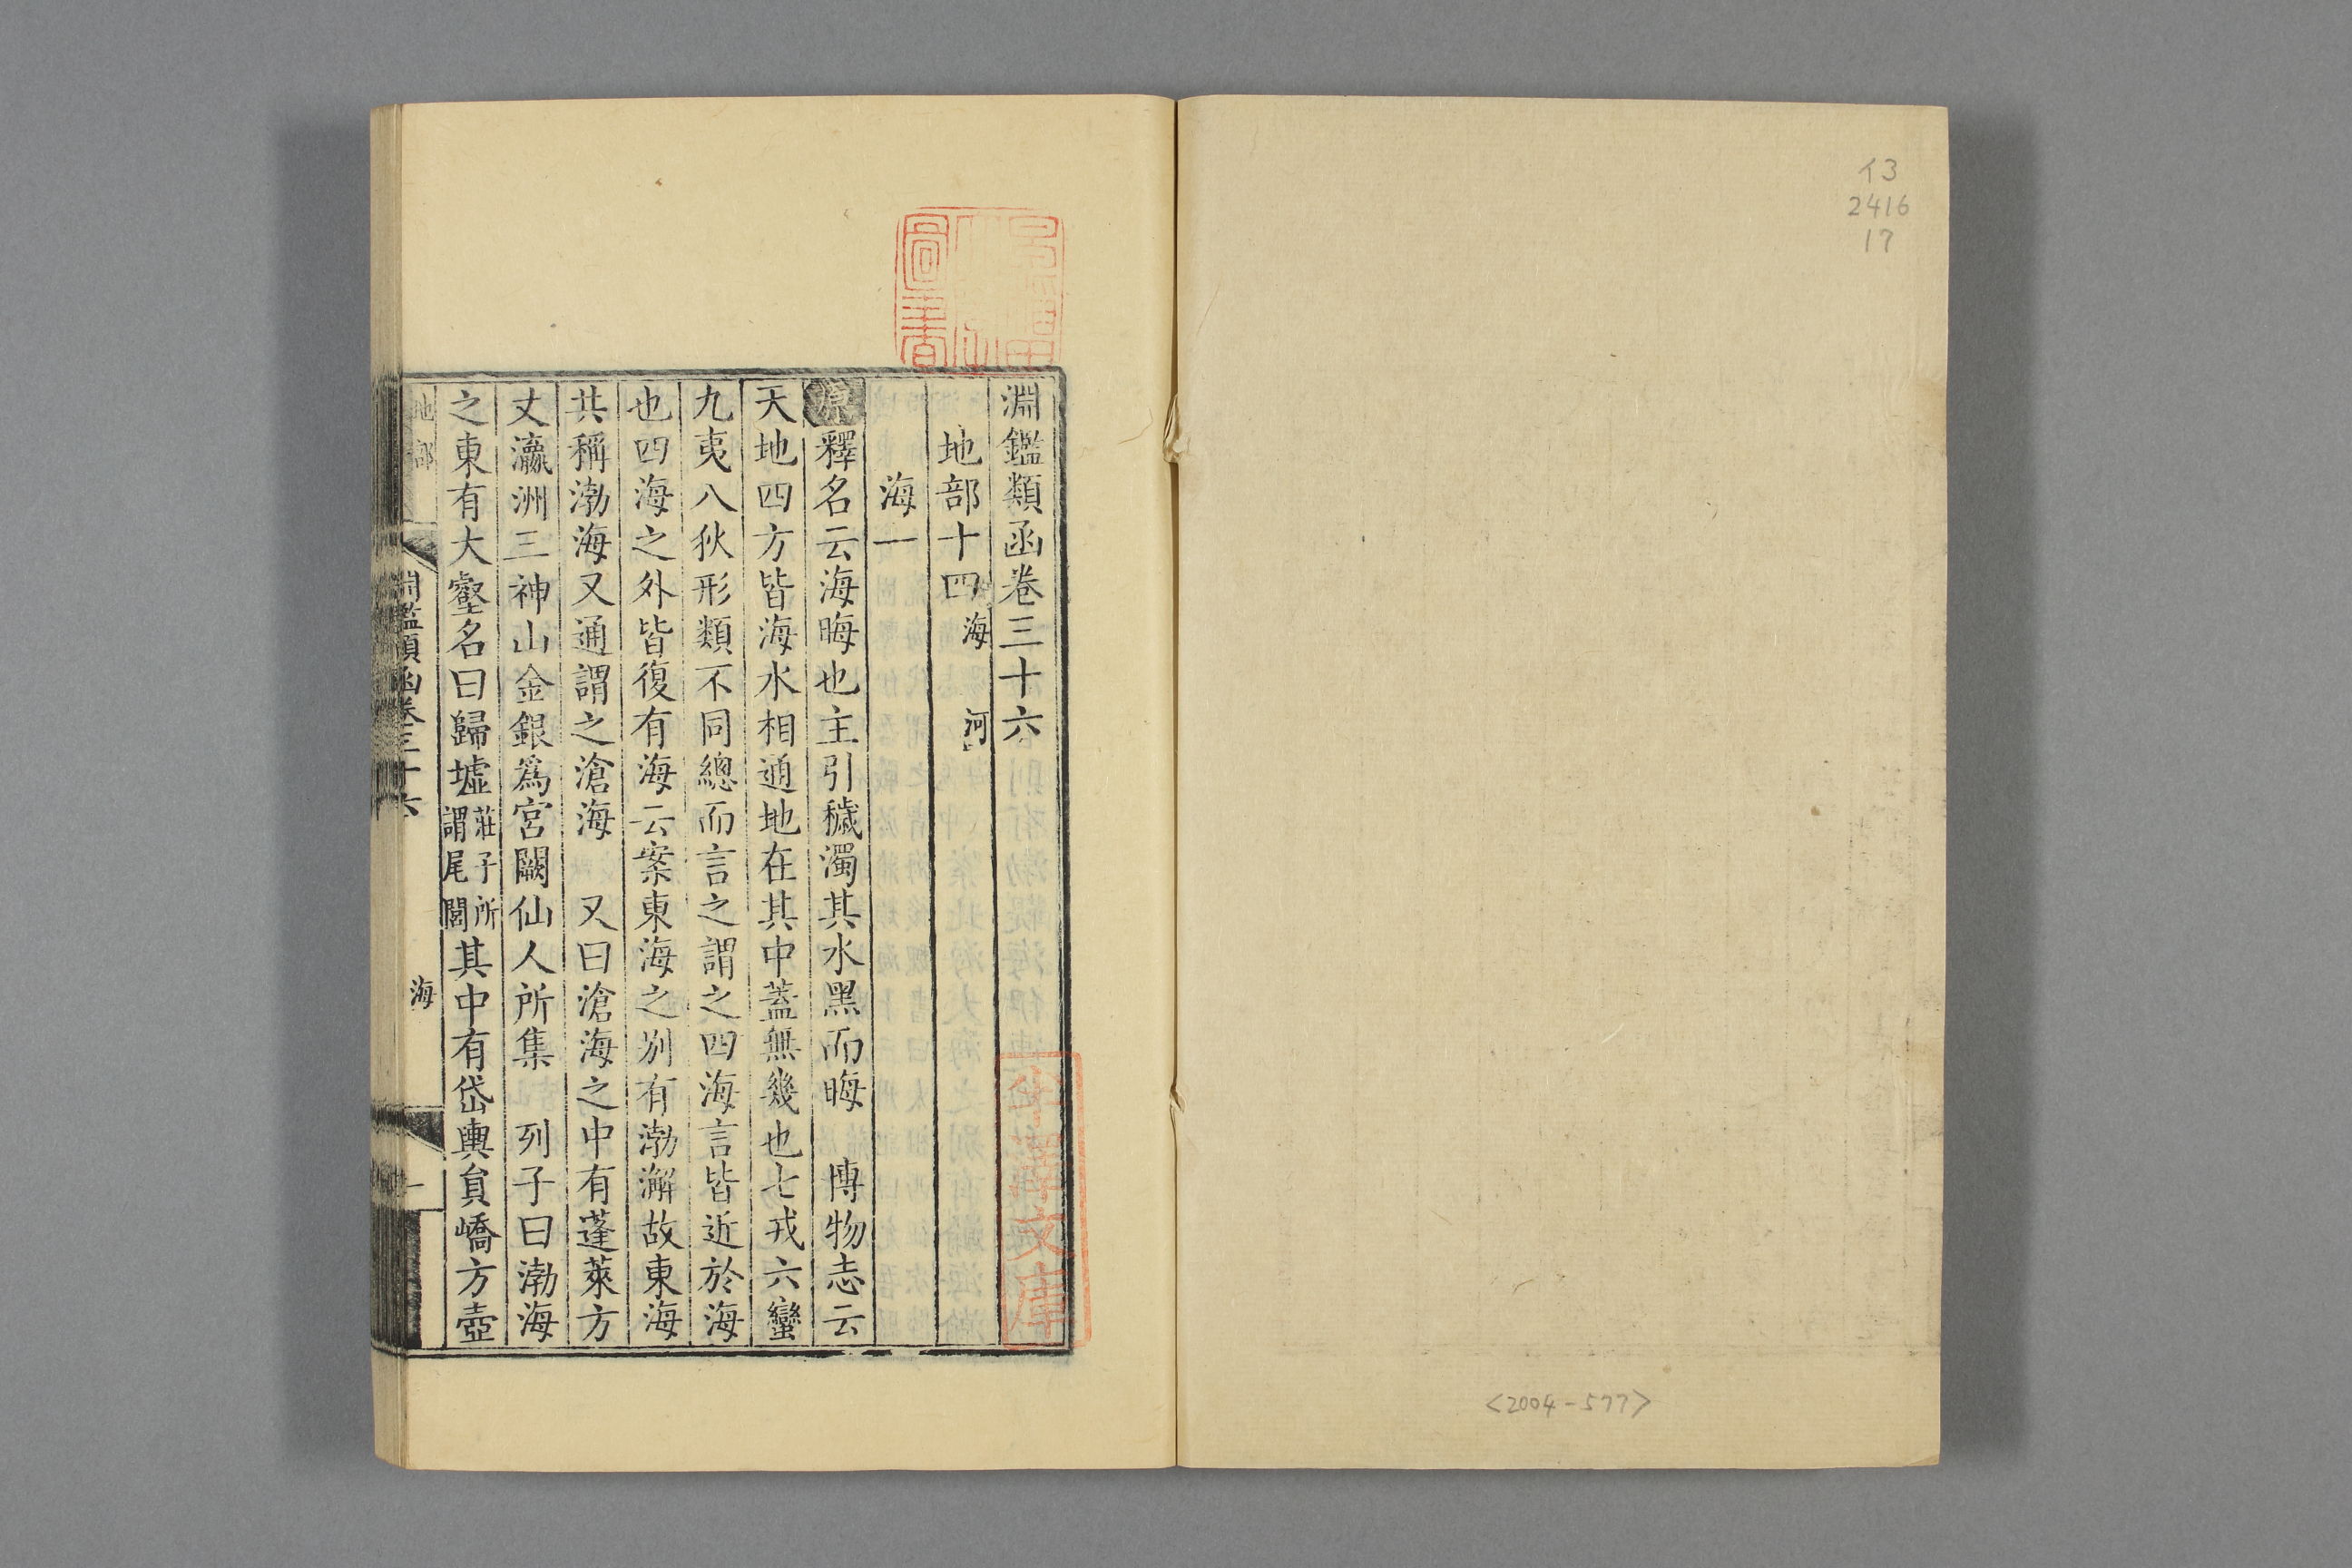 イ3
2416
17
<2004-577>
淵鑑類函卷三十六
地部十四 海 河
海一
原釋名云海晦也主引穢濁其水黑而晦 博物志云
天地四方皆海水相通地在其中蓋無幾也七戎六蠻
九夷八狄形類不同總而言之謂之四海言皆近於海
也四海之外皆復有海云案東海之別有渤澥故東海
共稱渤海又通謂之滄海 又曰滄海之中有蓬萊方
丈瀛洲三神山金銀爲宮闕仙人所集 列子曰渤海
之東有大壑名曰歸墟莊子所謂尾閭其中有岱輿員嶠方壺
地部 淵鑑類函卷三十六 海 一
圖書
文庫